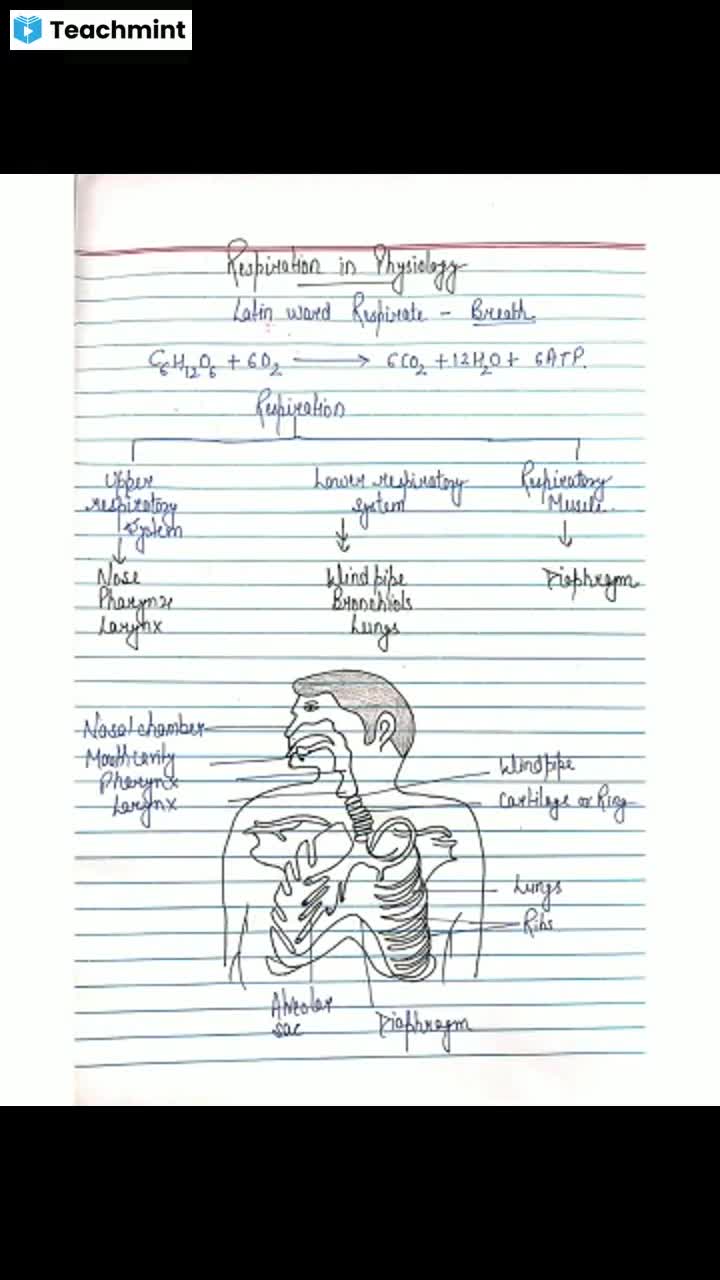 Teachmint
Respiration in Physiology
Latin ward Respirate - Breath.
C6H12O6 + 6O2 ⟶ 6CO2 + 12H2O + 6ATP.
Respiration
Upper
respiratory
System
Lower respiratory
System
Respiratory
Muscle.
Nose
Pharynx
Larynx
Wind pipe
Bronchiols
Lungs
Diaphragm
Nasal chamber
Mouth cavity
Pharynx
Larynx
Wind pipe
Cartilage or Ring
Lungs
Ribs
Alveolar
sac
Diaphragm